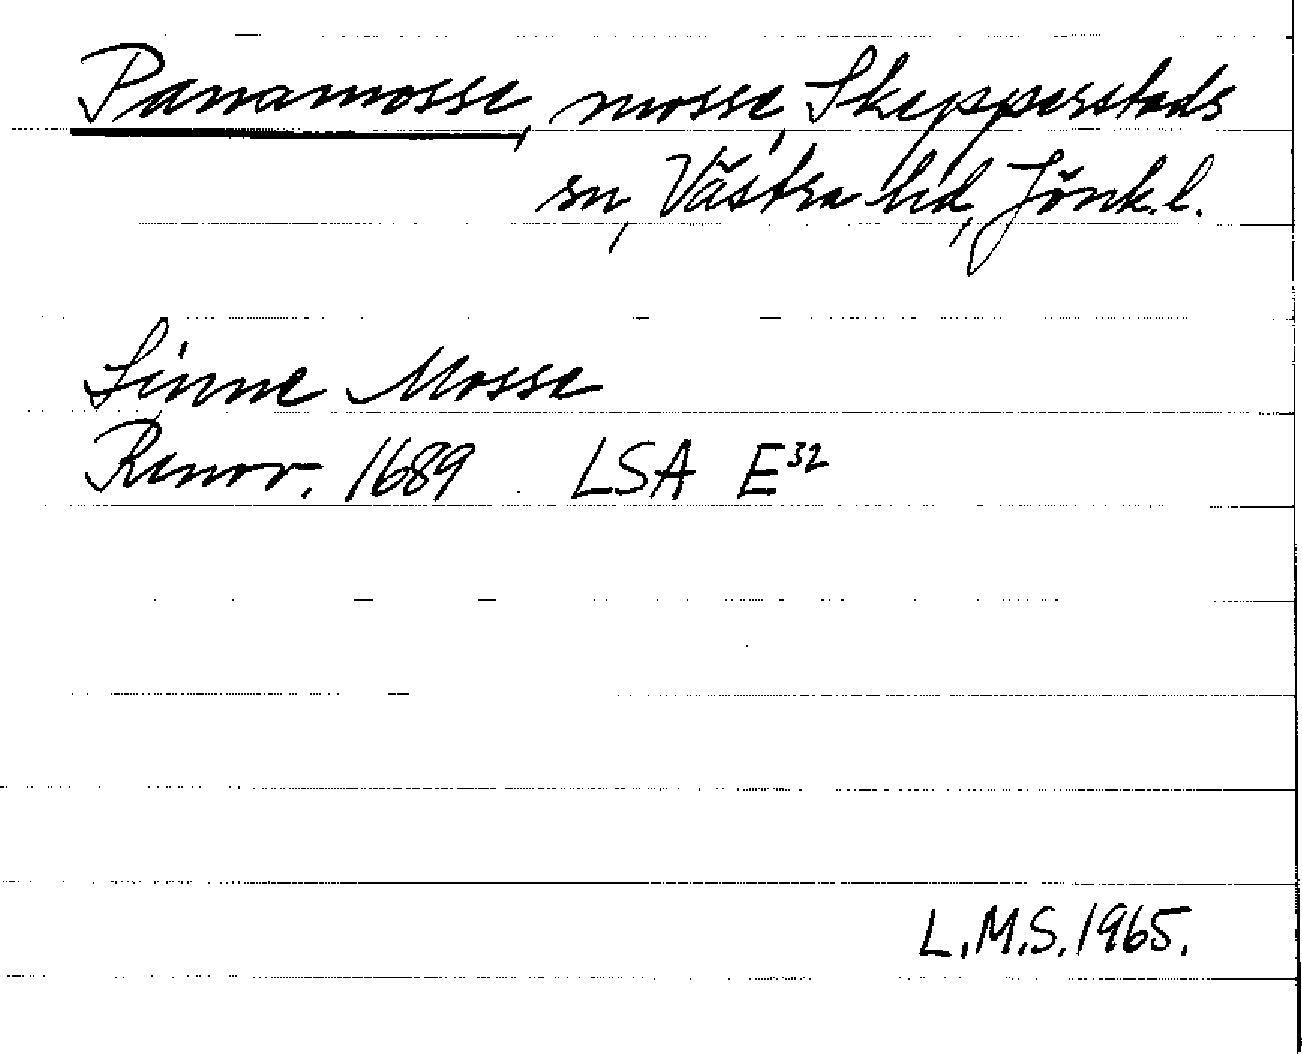 Panamosse, mosse, Skepperstads
sn, Västra hd, Jönk.l.
Linne Mosse
Renov. 1689 LSA E32
L.M.S. 1965.